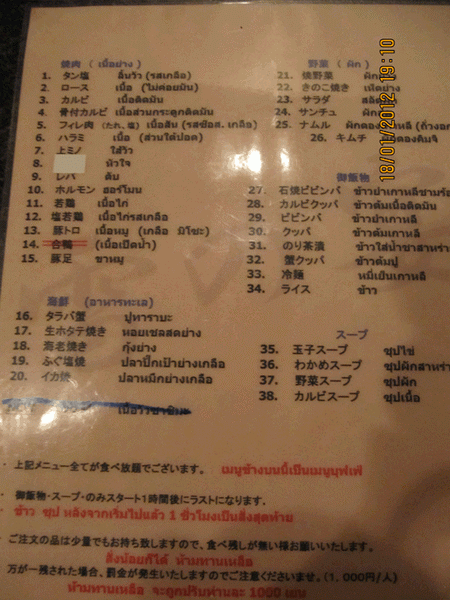 焼肉 (เนื้อย่าง)
1. タン塩 ลิ้นวัว (รสเกลือ)
2. ロース เนื้อ (ไม่ค่อยมัน)
3. カルビ เนื้อติดมัน
4. 骨付カルビ เนื้อส่วนกระดูกติดมัน
5. フィレ肉 (たれ, 塩) เนื้อสัน (รสซอส, เกลือ)
6. ハラミ เนื้อ (ส่วนใต้ปอด)
7. 上ミノ ไส้วัว
8. หัวใจ
9. レバ ตับ
10. ホルモン ฮอร์โมน
11. 若鶏 เนื้อไก่
12. 塩若鶏 เนื้อไก่รสเกลือ
13. 豚トロ เนื้อหมู (เกลือ มิโซะ)
14. 合鴨 (เนื้อเป็ดน้ำ)
15. 豚足 ขาหมู
海鮮 (อาหารทะเล)
16. タラバ蟹 ปูทาราบะ
17. 生ホタテ焼き หอยเชลสดย่าง
18. 海老焼き กุ้งย่าง
19. ふぐ塩焼 ปลาปั๊กเป้าย่างเกลือ
20. イカ焼 ปลาหมึกย่างเกลือ
野菜 (ผัก)
21. 焼野菜 ผัก
22. きのこ焼き เห็ดย่าง
23. サラダ สลัด
24. サンチュ ผัก
25. ナムル ผักดอง
26. キムチ
御飯物
27. 石焼ビビンバ ข้าวยำเกาหลีชามร้อ
28. カルビクッパ ข้าวต้มเนื้อติดมัน
29. ビビンバ ข้าวยำเกาหลี
30. クッパ ข้าวต้มเกาหลี
31. のり茶漬 ข้าวใส่น้ำชาสาหร่า
32. 蟹クッパ ข้าวต้มปู
33. 冷麺 หมี่เย็นเกาหลี
34. ライス ข้าว
スープ
35. 玉子スープ ซุปไข่
36. わかめスープ ซุปผักสาหร่า
37. 野菜スープ ซุปผัก
38. カルビスープ ซุปเนื้อ
・上記メニュー全てが食べ放題でございます。 เมนูข้างบนนี้เป็นเมนูบุฟเฟ่
・御飯物・スープ・のみスタート1時間後にラストになります.
・ข้าว ซุป หลังจากเริ่มไปแล้ว 1 ชั่วโมงเป็นสั่งสุดท้าย
ご注文の品は少量でもお持ち致しますので、食べ残しが無い様お願いいたします。
สั่งน้อยก็ได้ ห้ามทานเหลือ
万が一残された場合、罰金が発生いたしますのでご注意くださいませ。(1,000円/人)
ห้ามทานเหลือ จะถูกปรับท่านละ 1000 เยน
18/01/2012 19:10